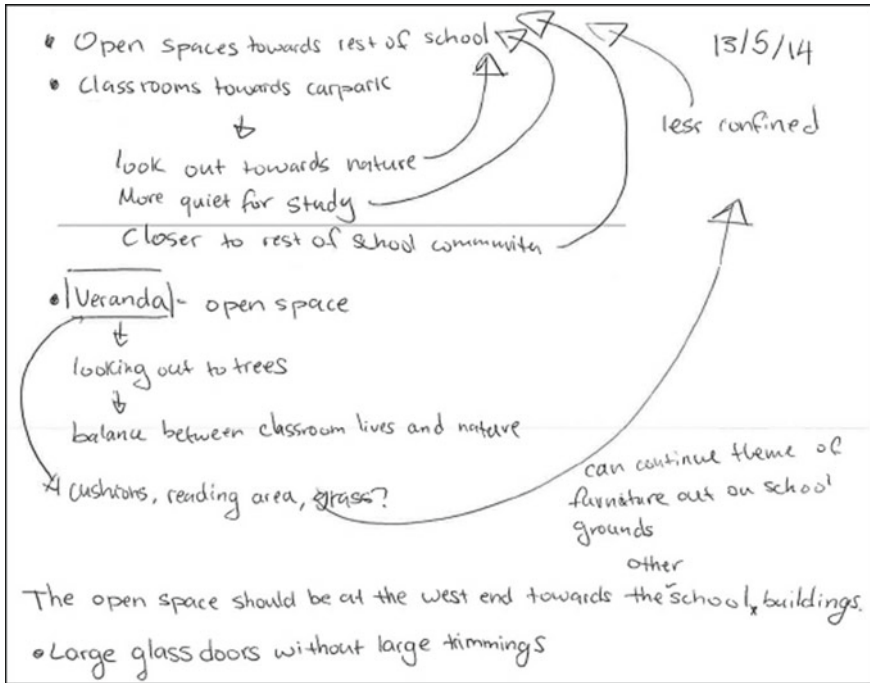 • Open spaces towards rest of school
13/5/14
• Classrooms towards carpark
less confined
look out towards nature
More quiet for study
Closer to rest of school community
• Veranda - open space
looking out to trees
balance between classroom lives and nature
cushions, reading area, grass?
can continue theme of
furnature out on school
grounds
other
The open space should be at the west end towards the school buildings.
• Large glass doors without large trimmings